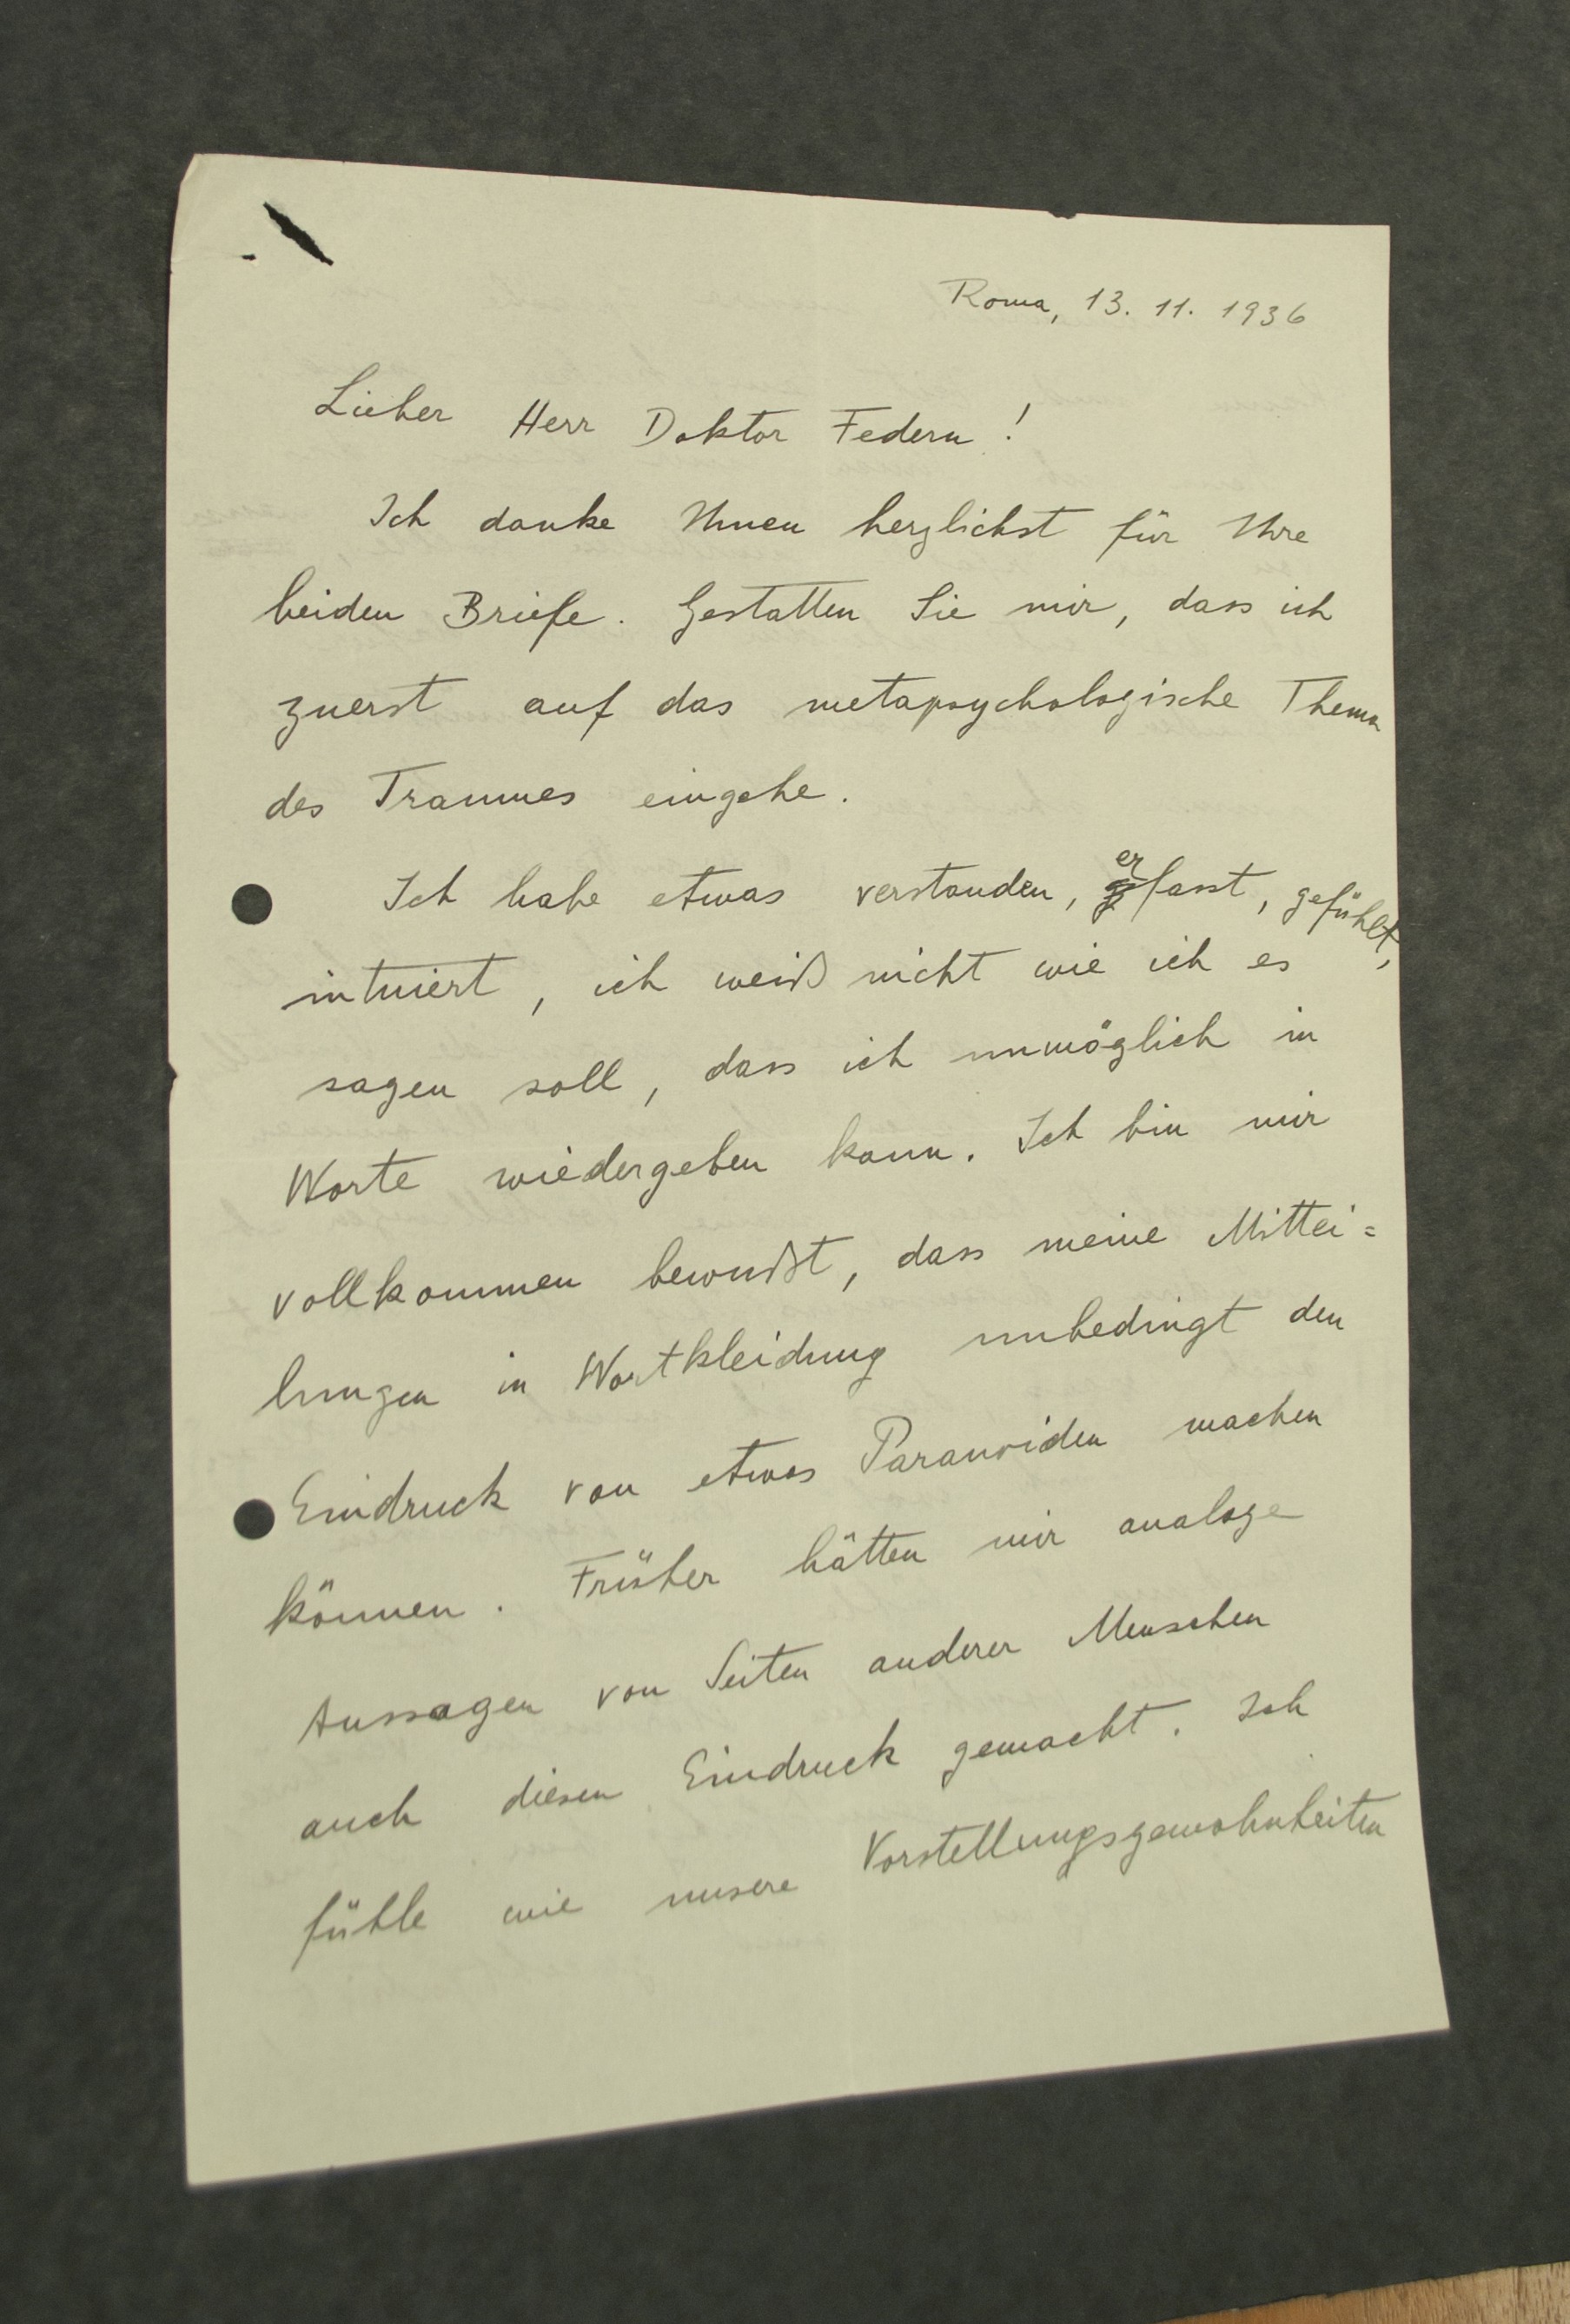 Roma, 13. 11. 1936
Lieber Herr Doktor Federn!
Ich danke Ihnen herzlichst für Ihre
beiden Briefe. Gestatten Sie mir, dass ich
zuerst auf das metapsychologische Thema
des Traumes eingehe.
Ich habe etwas verstanden, erfasst, gefühlt,
intuiert, ich weiß nicht wie ich es
sagen soll, dass ich unmöglich in
Worte wiedergeben kann. Ich bin mir
vollkommen bewußt, dass meine Mittei=
lungen in Wortkleidung unbedingt den
Eindruck von etwas Paranoiden machen
können. Früher hätten mir analoge
Aussagen von Seiten anderer Menschen
auch diesen Eindruck gemacht. Ich
fühle wie unsere Vorstellungsgewohnheiten